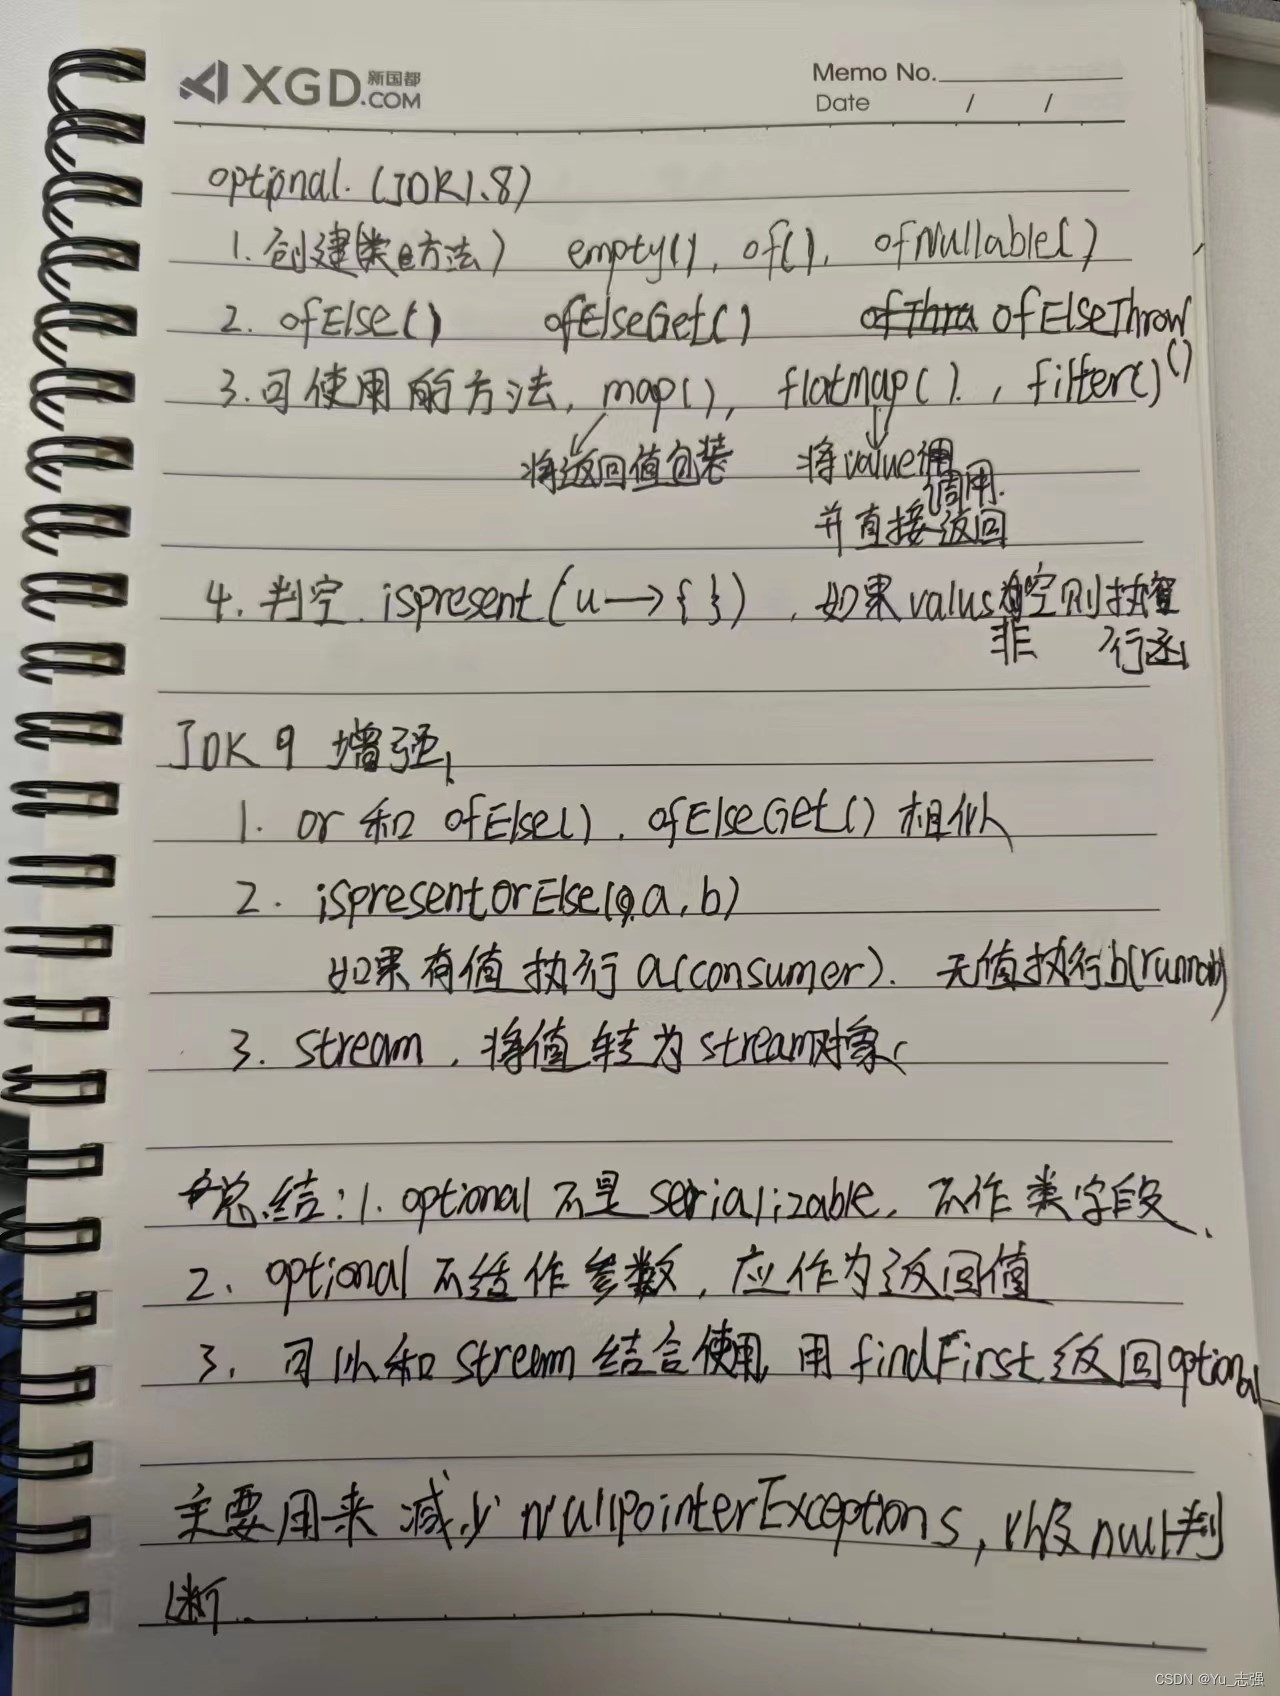 XGD新国都.COM
Memo No.
Date / /
optional. (JDK1.8)
1. 创建(类的方法) empty(), of(), ofNullable()
2. ofElse() ofElseGet() ofElseThrow()
3. 可使用的方法, map(), flatMap(). , filter()
将返回值包装 将value调用.
并直接返回
4. 判空. ispresent(u→{ }) , 如果values非空则执行函
JDK 9 增强,
1. or 和 ofElse(). ofElseGet() 相似
2. ispresentorElse(a, b)
如果有值执行a(consumer). 无值执行b(runnab)
3. stream , 将值转为stream对象
总结: 1. optional 不是 serializable, 不作类字段、
2、optional 不作参数, 应作为返回值
3、可以和 stream 结合使用, 用 findFirst 返回optional
主要用来减少 NullpointerExceptions, 以及null判
断.
CSDN @Yu_志强